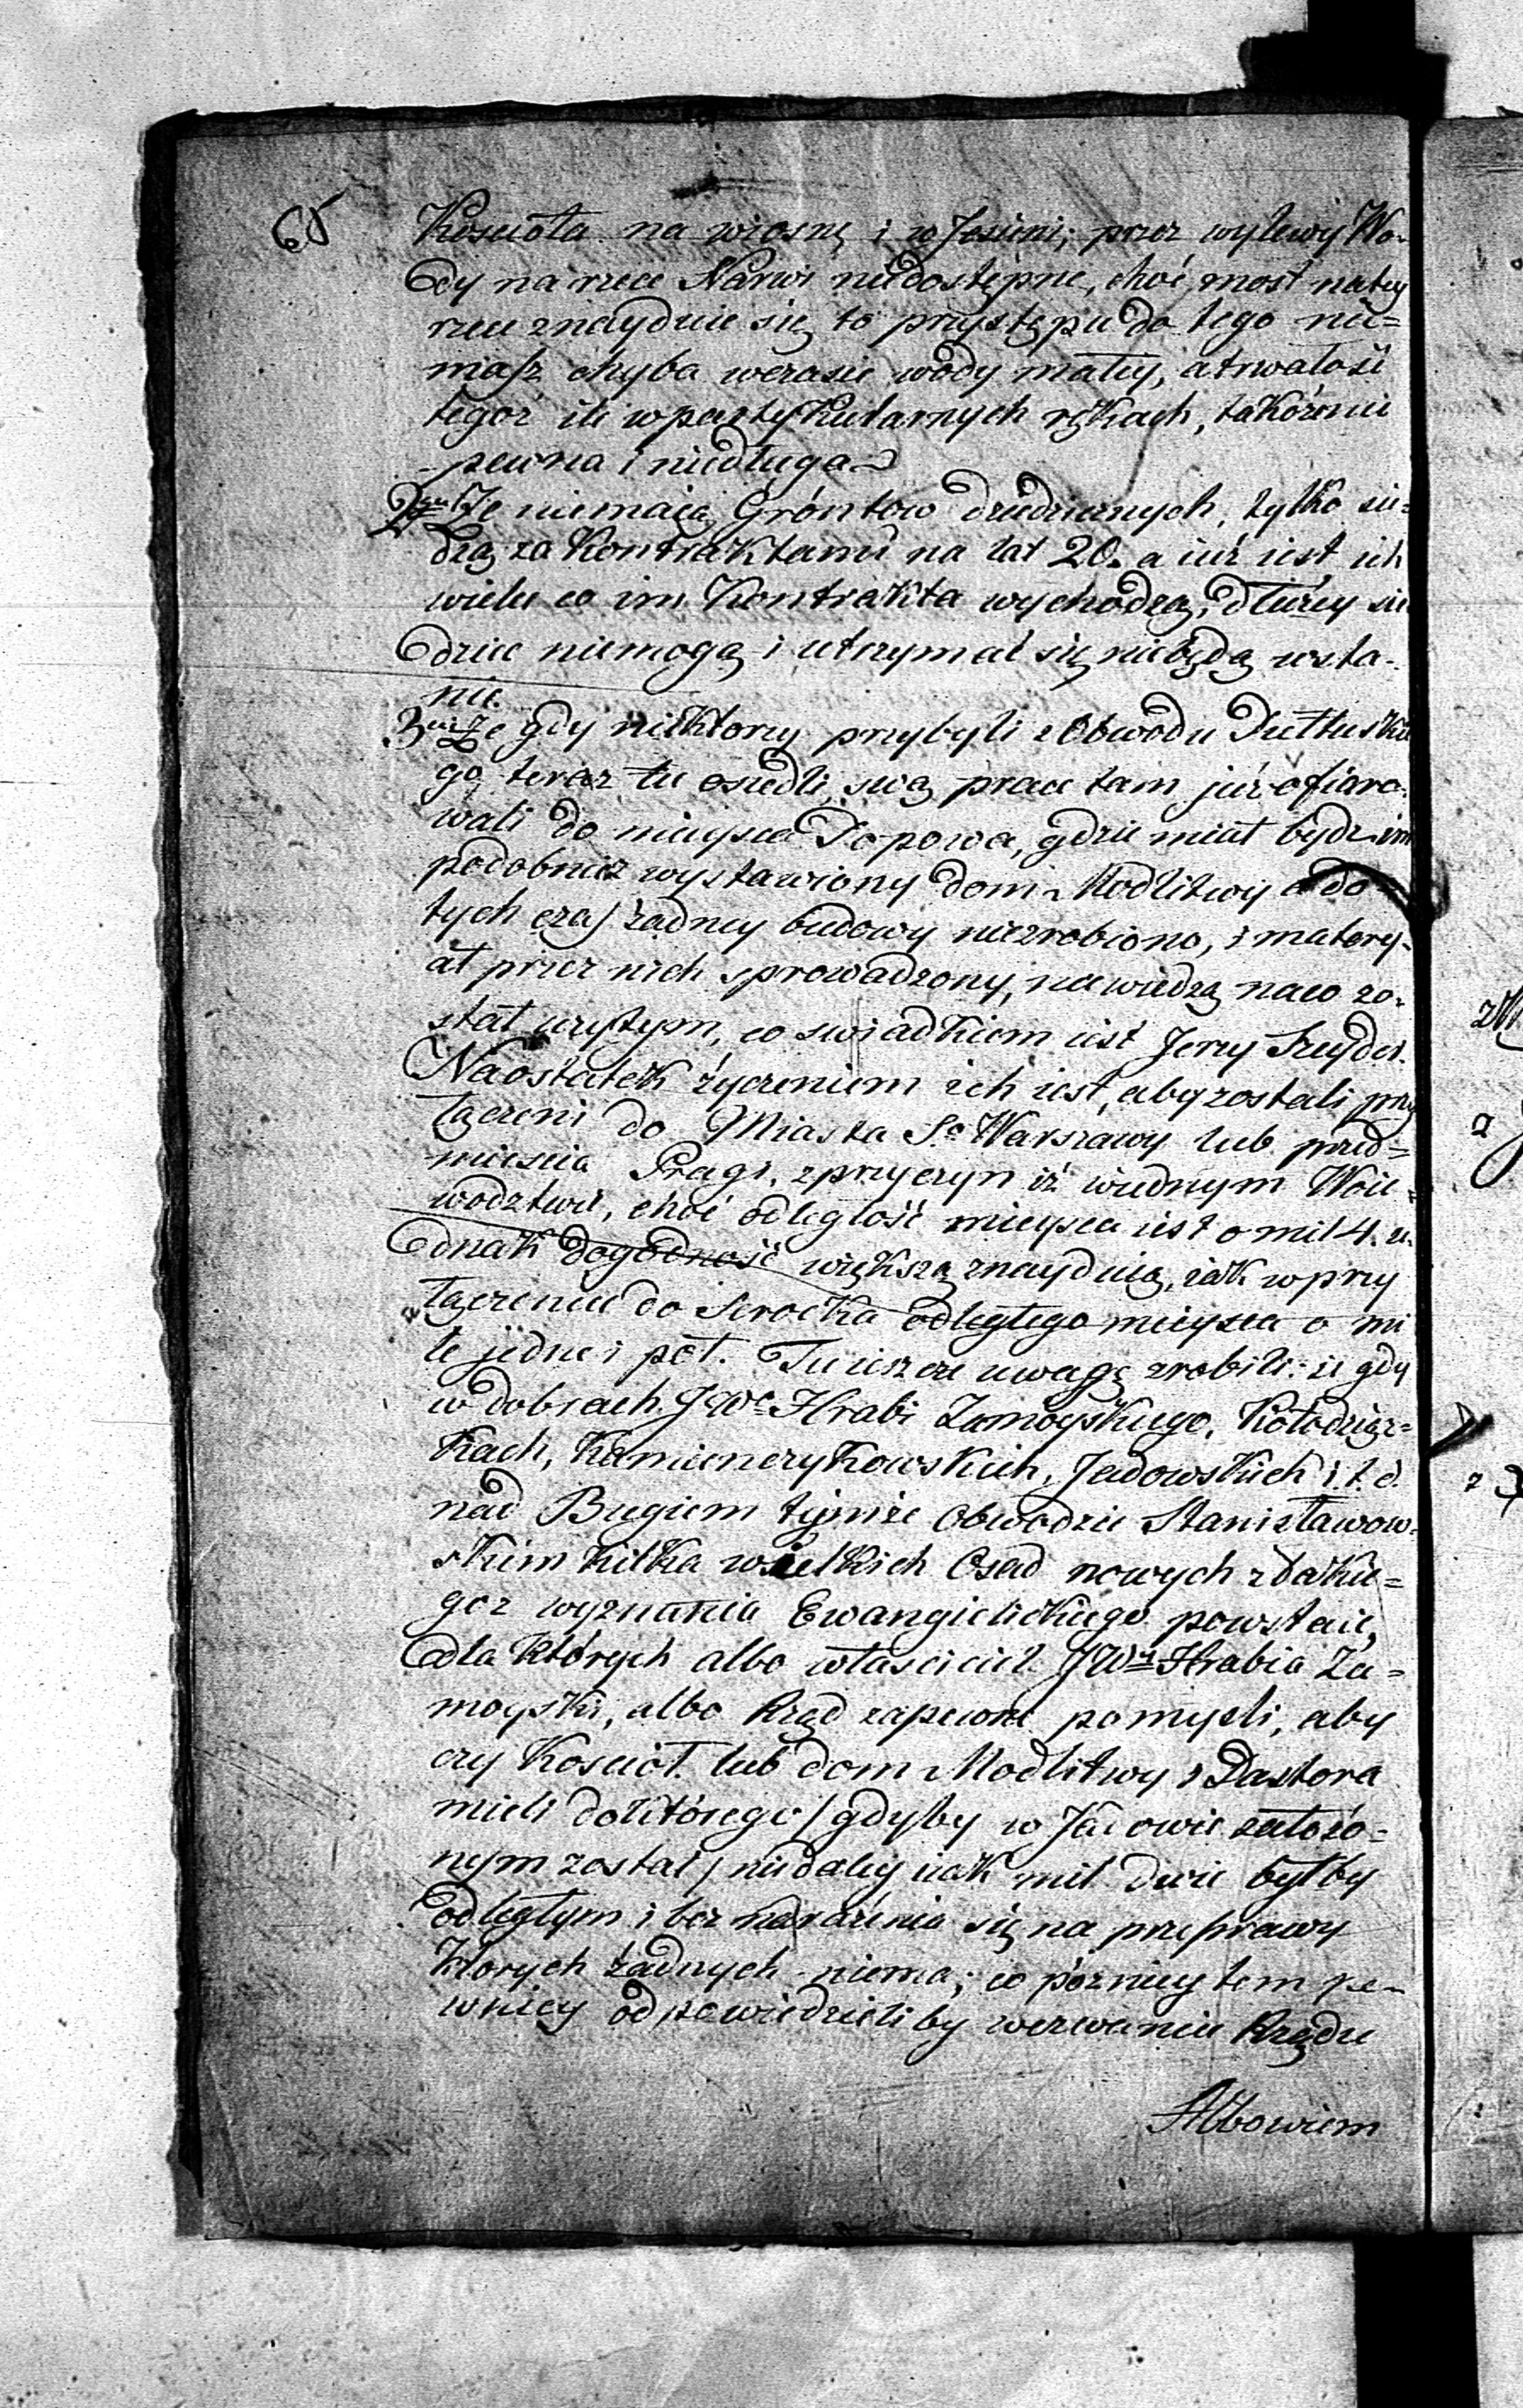 65
Koscioła na wiosnę i w Jesieni, przez wylewy Wo-
dy na rzece Narwi niedostępne, choć most na tey
rzece znayduie się, to przystępu do tego nie=
masz chyba w czasie wody małey, a trwałość
tegoż ile w partykularnych rękach, takóż nie
pewna i niedługa
2re Że niemaią Gróntow dziedzicznych, tylko sie-
dzą za Kontraktami na lat 20. a iuż iest ich
wielu co im Kontrakta wychodzą, dłużey sie
dziec niemogą i utrzymać się niebędą w sta-
nie.
3cie Że gdy niektorzy przybyli z Obwodu Pułtuskie
go teraz tu osiedli, swą prace tam już ofiaro-
wali do mieysca Popowa, gdzie miał bydz im
podobnież wystawiony dom Modlitwy a do
tych czas żadney budowy niezrobiono, i matery-
ał przez nich sprowadzony, niewiedzą na co zo-
stał użytym, co swiadkiem iest Jerzy
Naostatek życzeniem ich iest, aby zostali przy
łączeni do Miasta So Warszawy lub przed=
miescia Pragi, z przyczyn iż w iednym Woie-
wodztwie, choć odległość mieysca iest o mil 4. ie-
dnak dogodność większą znayduią, iak w przy
łączeniu do Serocka odległego mieysca o mi
le jedne i pół. Tu ieszcze uwagę zrobili: iż gdy
w dobrach JWo Hrabi Zamoyskiego, Kołodziąz=
kach, Kamienczykowskich, Jadowskich i. t. d.
nad Bugiem tymże Obwodzie Stanisławow-
skim kilka wielkich Osad nowych z takie=
goz wyznania Ewangielickiego powstaie,
dla których albo własciciel JWny Hrabia Za=
moyski, albo Rząd zapewne pomysli, aby
czy Kosciół lub dom Modlitwy i Pastora
mieli do którego / gdyby w Jadowie założo=
nym został / niedaley iak mil dwie byłby
odległym i bez narażenia się na przeprawy
których żadnych niema; co pózniey tem pe-
wniey odpowiedzieliby wezwaniu Rządu
Albowiem